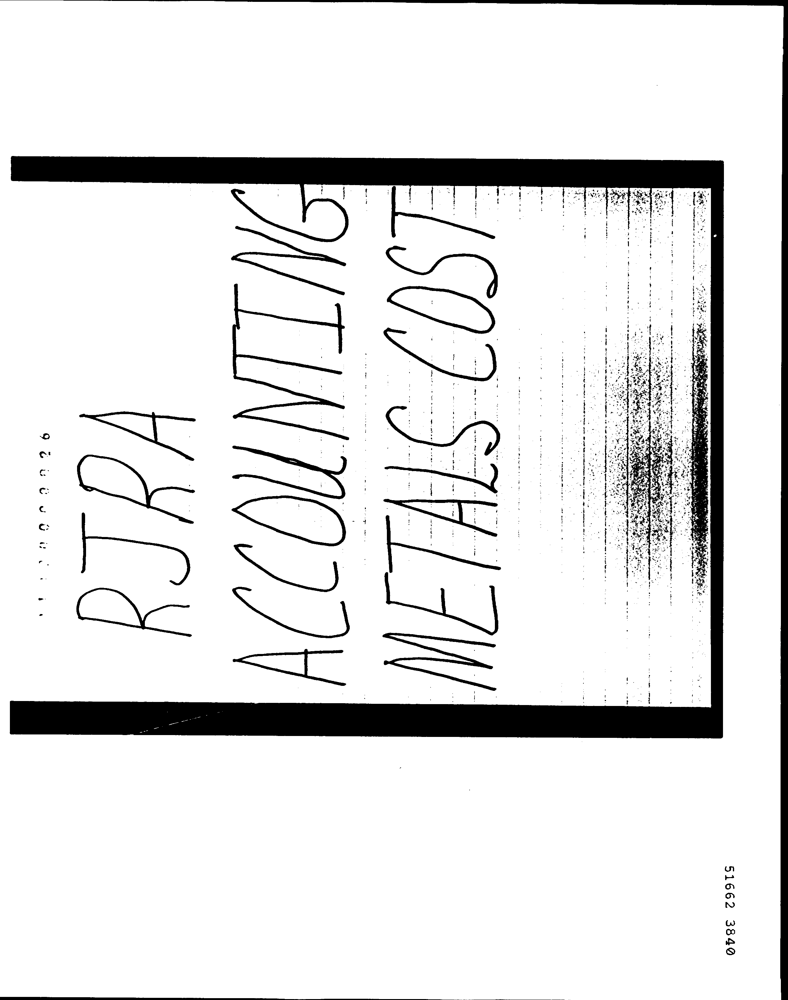 RJRA
ACCOUNTING
METALS COST
51662 3840